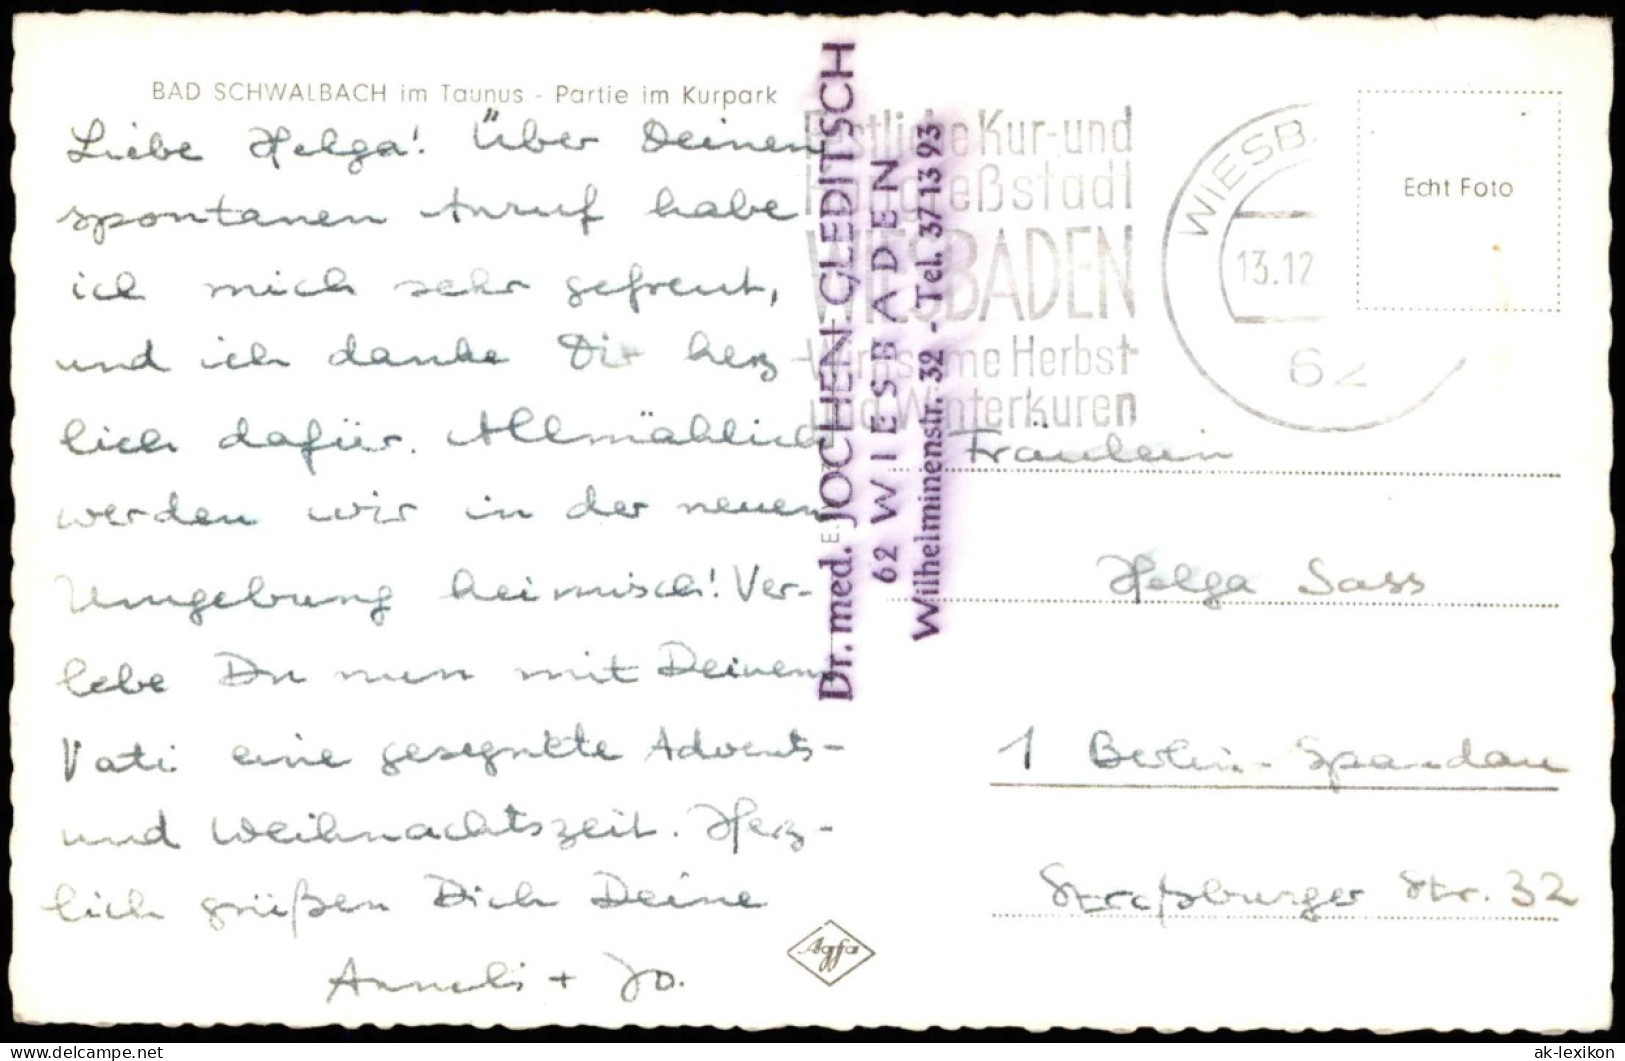 BAD SCHWALBACH im Taunus - Partie im Kurpark
Liebe Helga! Über Deinen
spontanen Anruf habe
ich mich sehr gefreut,
und ich danke Dir herz-
lich dafür. Allmählich
werden wir in der neuen
Umgebung heimisch! Ver-
lebe Du nun mit Deinem
Vati eine gesegnete Advents-
und Weihnachtszeit. Herz-
lich grüßen Dich Deine
Anneli + Jo.
Dr. med. JOCHEN GLEDITSCH
62 WIESBADEN
Wilhelminenstr. 32 - Tel. 37 13 93
Kur- und
Kongreßstadt
WIESBADEN
Herbst-
und Winterkuren
WIESB
13.12
62
Echt Foto
Fräulein
Helga Sass
1 Berlin-Spandau
Straßburger Str. 32
Agfa
ak-lexikon